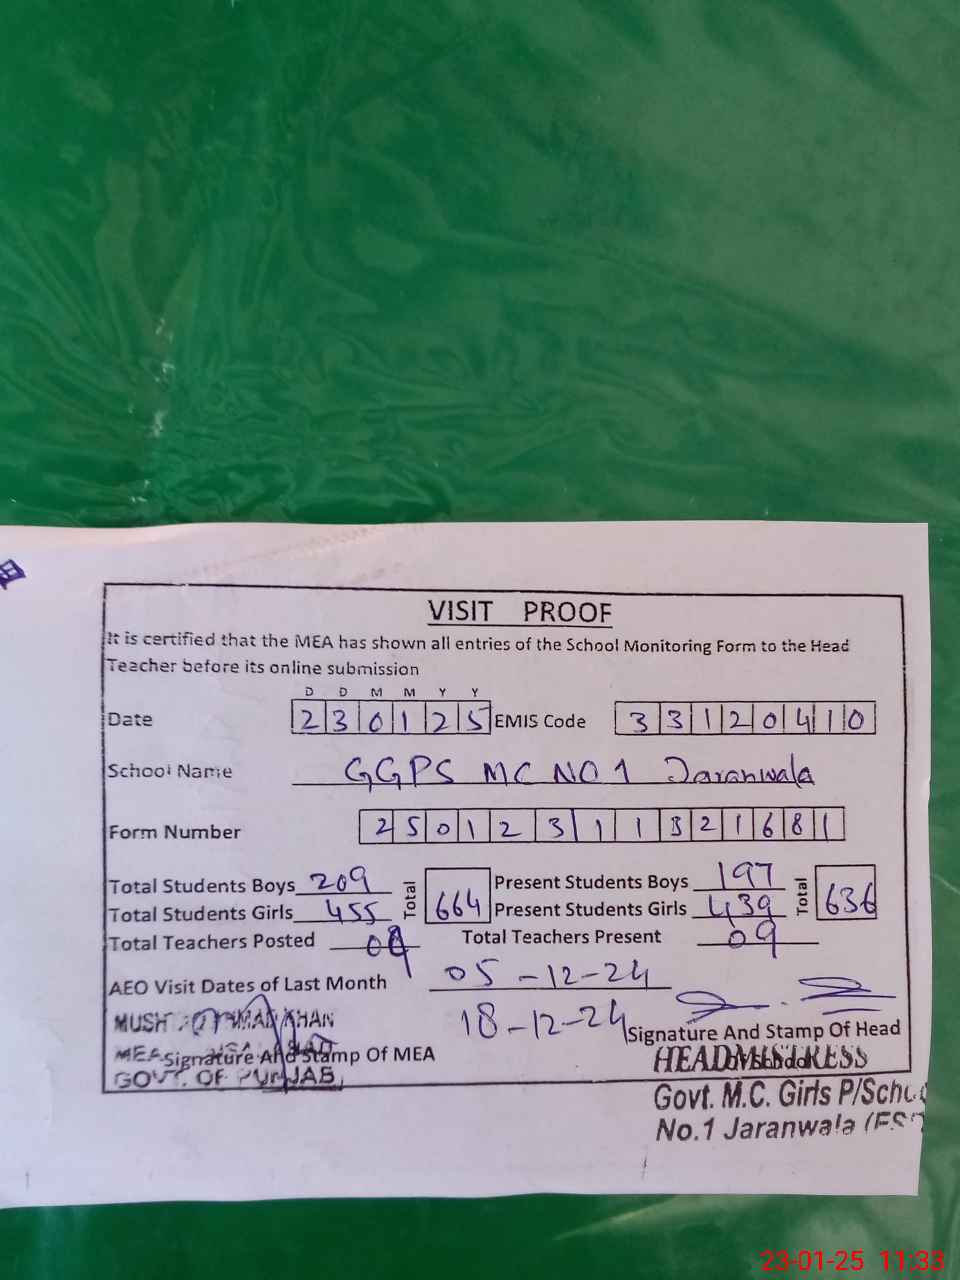 VISIT PROOF
It is certified that the MEA has shown all entries of the School Monitoring Form to the Head
Teacher before its online submission
D D M M Y Y
Date 2 3 0 1 2 5 EMIS Code 3 3 1 2 0 4 1 0
School Name GGPS MC NO 1 Jaranwala
Form Number 2 5 0 1 2 3 1 1 3 2 1 6 8 1
Total Students Boys 209 Total 664 Present Students Boys 197 Total 636
Total Students Girls 455 Present Students Girls 439
Total Teachers Posted 09 Total Teachers Present 09
AEO Visit Dates of Last Month 05-12-24
18-12-24
Signature And Stamp Of Head
MEA Signature And Stamp Of MEA
HEADMISTRESS
GOVT. OF PUNJAB
Govt. M.C. Girls P/School
No.1 Jaranwala
23-01-25 11:33